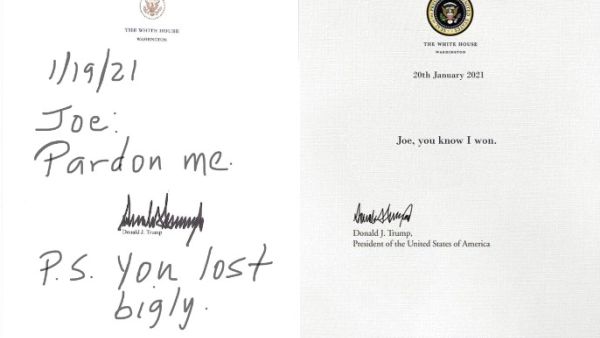 THE WHITE HOUSE
WASHINGTON
1/19/21
Joe:
Pardon me.
Donald J. Trump
P.S. You lost
bigly.
THE WHITE HOUSE
WASHINGTON
20th January 2021
Joe, you know I won.
Donald J. Trump,
President of the United States of America